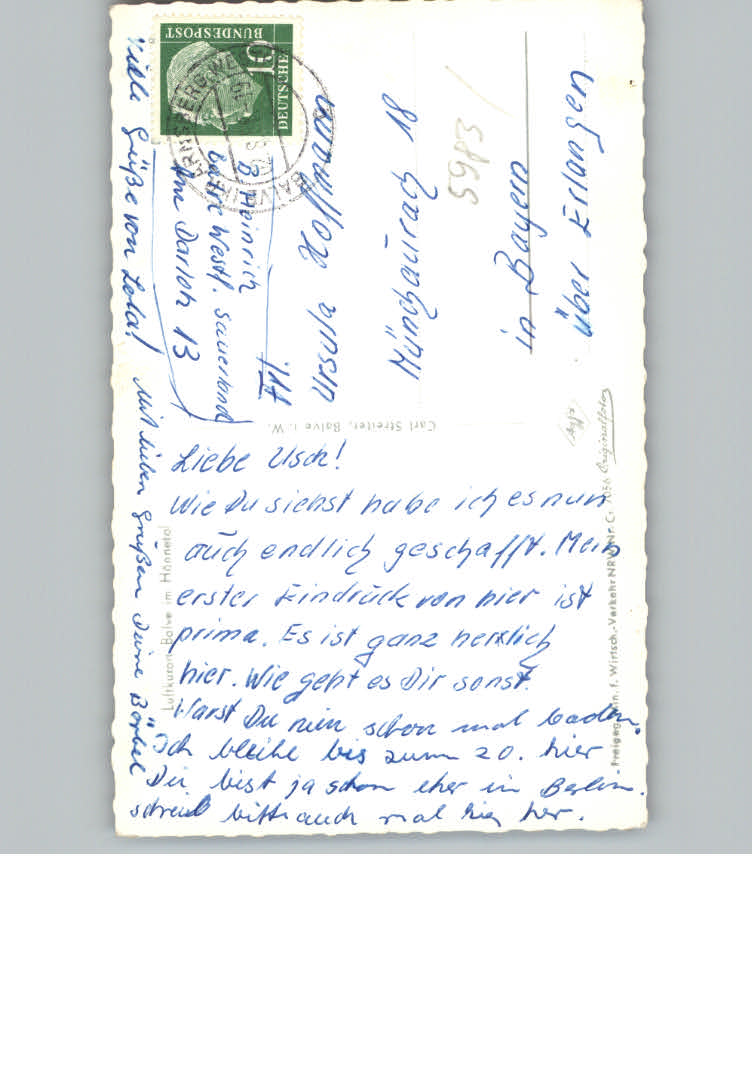 Liebe Usch!
Wie Du siehst habe ich es nun
auch endlich geschafft. Mein
erster Eindruck von hier ist
prima. Es ist ganz herzlich
hier. Wie geht es Dir sonst.
Warst Du nun schon mal baden.
Ich bleibe bis zum 20. hier
Du bist ja schon eher in Berlin.
schreib bitte auch mal hier her.
mit lieben Grüßen Deine Bärbel
Viele Grüße von Lola!
B Heinrich
Balve Westf. Sauerland
Am Darloh 13
Ursula
Münchaurach 18
in Bayern
über Erlangen
5983
DEUTSCHE
BUNDESPOST
10
BALVE
Carl Streiter, Balve i. W.
Luftkurort Balve im Hönnetal
Originalfoto